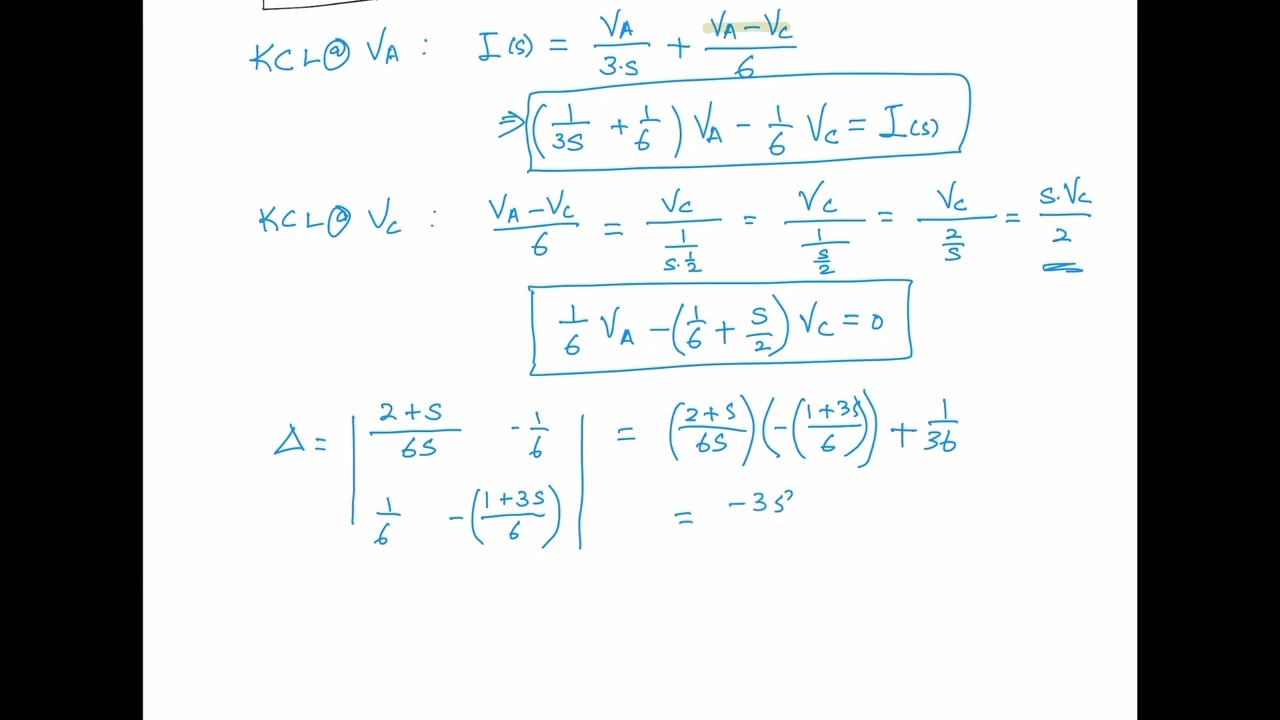 KCL@ V_A : I(s) = V_A/(3·s) + (V_A − V_C)/6
⇒ (1/(3s) + 1/6) V_A − 1/6 V_C = I(s)
KCL@ V_C : (V_A − V_C)/6 = V_C/(1/(s·1/2)) = V_C/(1/(s/2)) = V_C/(2/s) = s·V_C/2
1/6 V_A − (1/6 + s/2) V_C = 0
Δ = | (2+s)/(6s) −1/6 | = ((2+s)/(6s)) (−((1+3s)/6)) + 1/36
| 1/6 −((1+3s)/6) | = −3s²